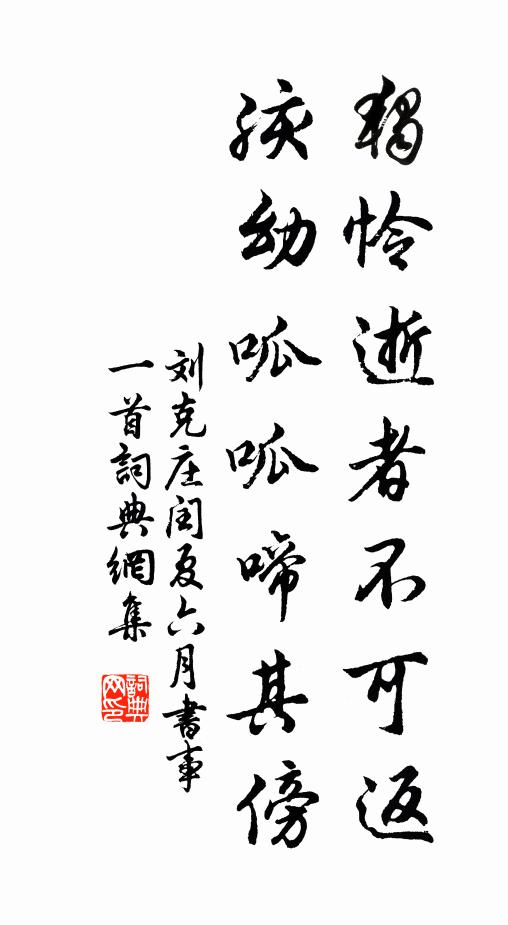 獨怜逝者不可返
孩幼呱呱啼其傍
刘克庄闰夏六月書事
一首詞典網集
詞典网印